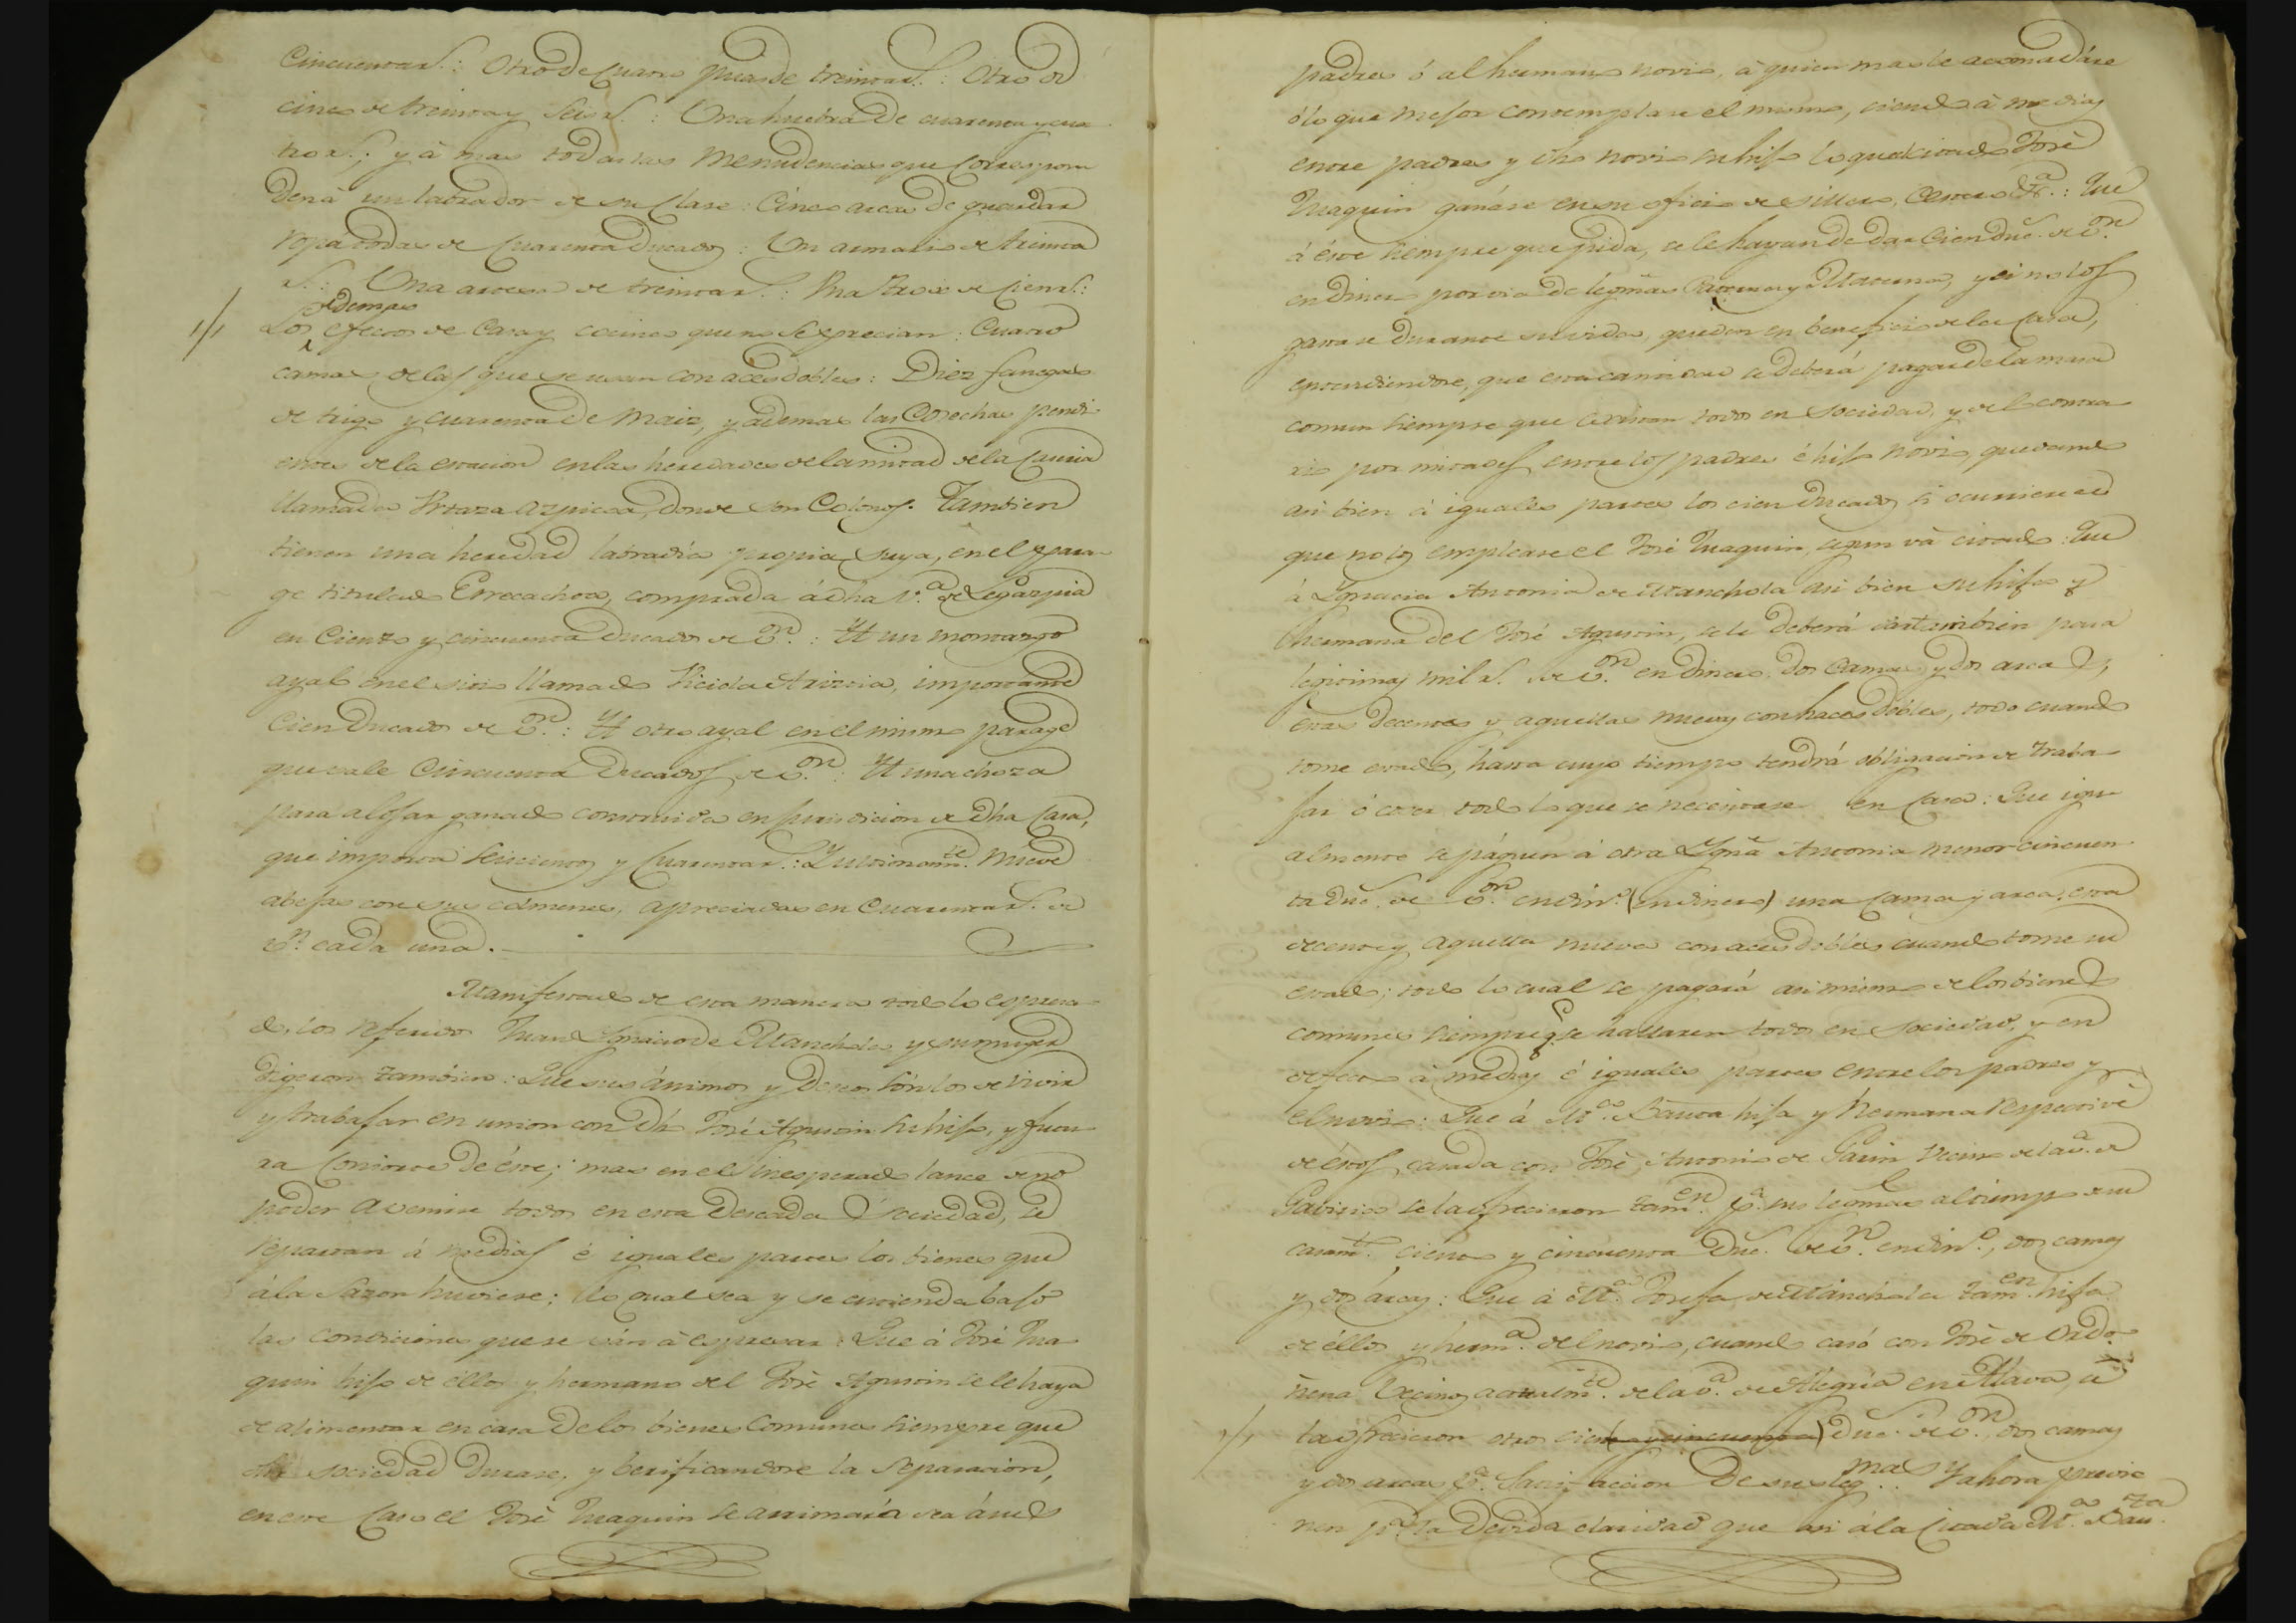 Cincuenta r.s: Otro de cuatro puas de treinta r.s: Otro de
cinco de treinta y seis r.s: Una huebra de cuarenta y cua
tro r.s; y à mas todas las menudencias que corresponn
den à un labrador de su clase: Cinco arcas de guardar
ropa todas de cuarenta Ducados: Un armario de treinta
r.s: Una artesa de treinta r.s: de cien r.s:
Los demas efectos de casa y cocina que no se aprecian: Cuatro
camas de las que se usan con aces dobles: Diez fanegas
de trigo y cuarenta de maiz, y ademas las cosechas pendi
entes de la estacion en las heredades de la mitad de la casería
llamada Urtaza azpicoa, donde son colonos. Tambien
tienen una heredad labradía propia suya, en el para-
ge titulado Errecachoa, comprada à dha V.a de Legazpia
en ciento y cincuenta Ducados de v.n: Yt un montazgo
ayal en el sitio llamado, importante
cien Ducados de v.n: Yt otro ayal en el mismo parage
que vale cincuenta Ducados de v.on: Yt una choza
para alojar ganado construida en jurisdicion de dha casa,
que importa seiscientos y cuarenta r.s: Y ultimam.te nueve
abejas con sus colmenes, apreciadas en cuarenta r.s de
v.n cada una.
Manifestado de esta manera todo lo espresa-
do, los referidos Juan Ignacio de Manchola y su muger
digeron tambien: Que sus ánimos y deseos són los de vivir
y trabajar en union con dho José Agustin su hijo, y futu
ra consorte de éste; mas en el inesperado lance de no
poder avenirse todos en esta deseada sociedad, se
repartan á medias é iguales partes los bienes que
á la sazon huviere; lo qual sea y se entienda bajo
las condiciones que se ván à espresar: Que á José Jua
quin hijo de éllos y hermano del José Agustin se le haya
de alimentar en casa de los bienes comunes siempre que
dha sociedad durare, y berificandose la separacion,
en este caso el José Juaquin se arrimará sea á sus
padres ó al hermano novio, à quien mas le acomodáre
ó lo que mejor contemplare el mismo, siendo à medias
entre padres y dho novio su hijo lo que el citado José
Juaquin ganáre en su oficio de sillero, cestero &.a: Que
á éste siempre que pida, se le hayan de dar cien duc.s de v.on
en dinero por via de legitimas Paterna y Materna, y si no los
gastase durante su vida, queden en beneficio de la casa,
entendiendose, que esta cantidad se deberá pagar de la masa
comun siempre que existan todos en sociedad, y de lo contra
rio por mitades entre los padres é hijo novio, quedando
asi bien à iguales partes los cien ducados si ocurriere el
que no los empleare el José Juaquin, segun vá citado: Que
à Ygnacia Antonia de Manchola asi bien su hija y
hermana del José Agustin, se le deberá dar tambien para
legitimas mil r.s de v.on en dinero, dos camas y dos arcas,
estas decentes y aquellas nuevas con haces dobles, todo cuando
tome estado, hasta cuyo tiempo tendrá obligacion de traba
jar ó coser todo lo que se necesitase en casa: Que igu
almente se páguen á otra Ygn.a Antonia menor cincuen
ta duc.s de v.on en din.o (en dinero) una cama y arca, esta
decente y aquella nueva con aces dobles cuando tome su
estado; todo lo cual se pagará asimismo de los bienes
comunes siempre q.e se hallaren todos en sociedad, y en
defecto à medias é iguales partes entre los padres y
el novio: Que á M.a Bauta hija y hermana respective
de éstos, casada con José Antonio de Garin vecino de la v.a de
Gaviria se la ofrecieron tam.en p.a sus legitimas al tiempo de su
casam.to ciento y cincuenta Duc.s de v.n en din.o, dos camas
y dos árcas: Que á M.a Josefa de Manchola tam.en hija
de éllos y herm.a del novio, cuando casó con José de Ordo-
ñana vecino actualm.te de la v.a de Alegria en Alava, se
la ofrecieron otros cien(to y cincuenta) duc.s de v.on, dos camas
y dos arcas p.a satisfaccion de sus leg.mas. Y ahora previe
nen p.a la devida claridad que asi à la citada M.a Bau.ta